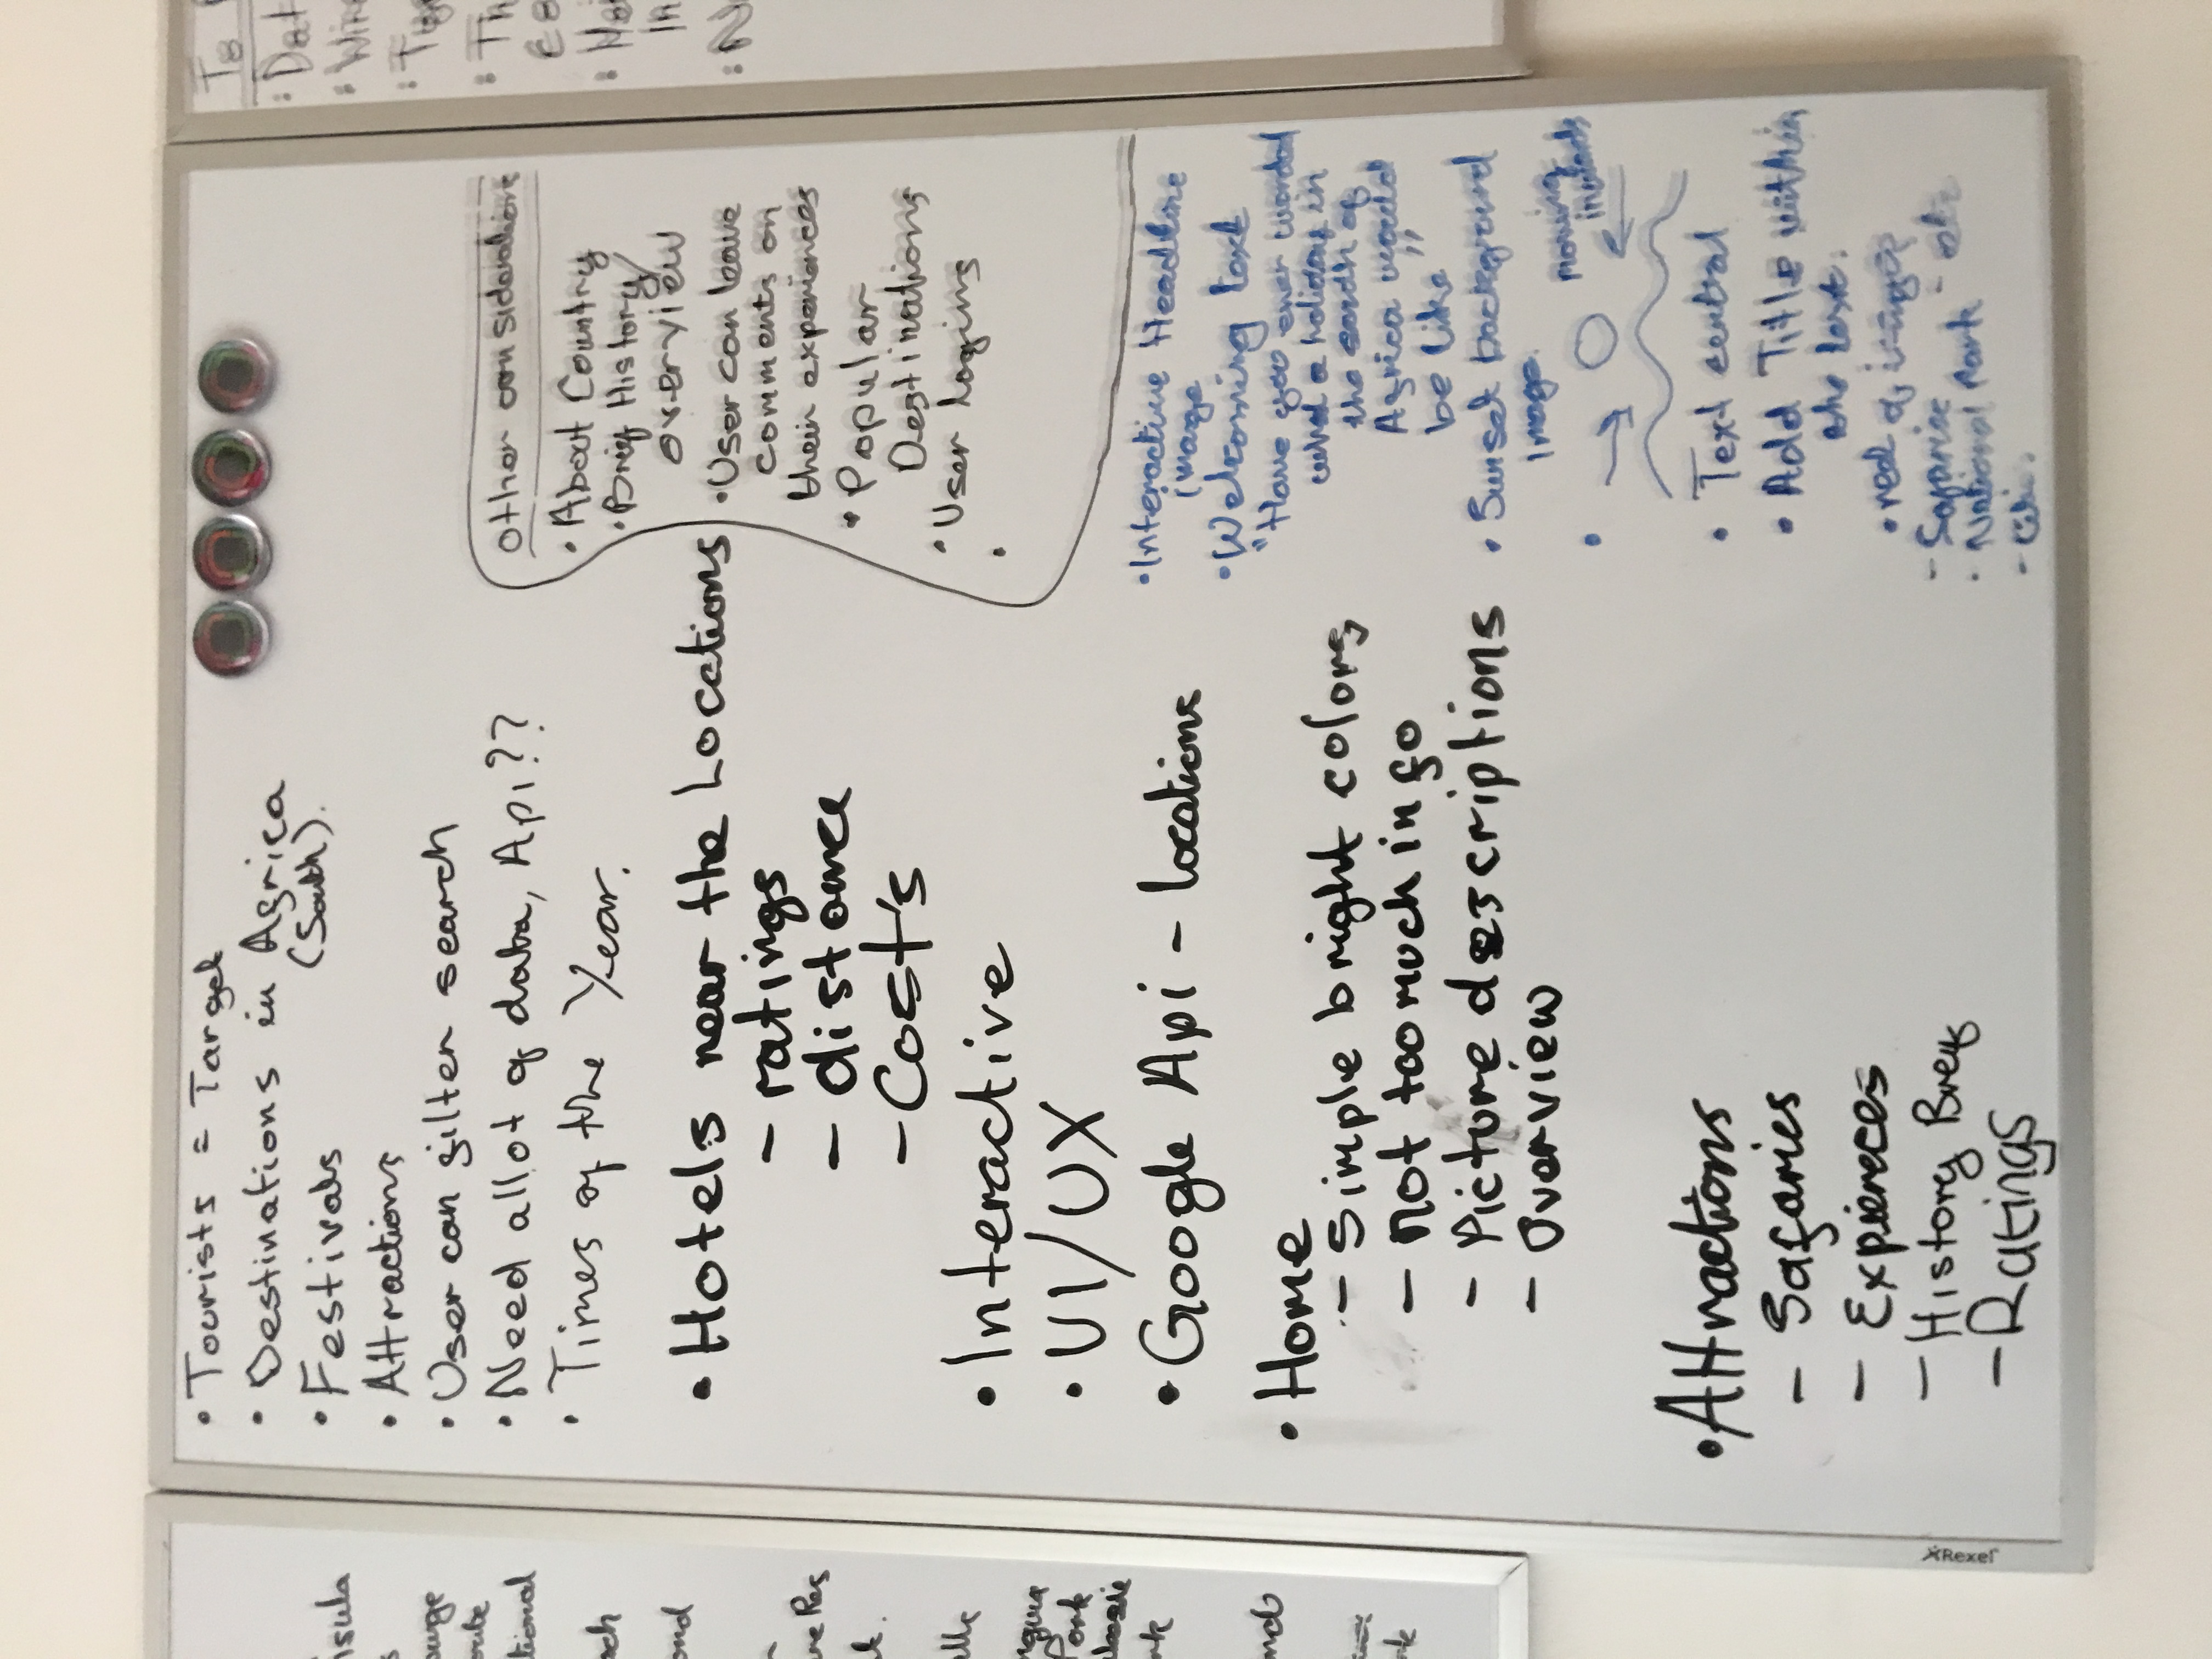 • Tourists = Target
• Destinations in Africa
(South).
• Festivals
• Attractions
• User can filter search
• Need allot of data, Api??
• Times of the Year.
• Hotels near the Locations
- ratings
- distance
- Cost's
• Interactive
• UI/UX
• Google Api - locations
• Home
- Simple bright colors
- not too much info
- Picture descriptions
- Overview
• Attractions
- Safaries
- Expiereces
- History Breif
- Ratings
other considerations
• About Country
• Brief History/
overview
• User can leave
comments on
their experiences
• Popular
Destinations
• User logins
•
• Interactive Headline
image
• Welcoming text
"Have you ever
what a holiday in
the south of
Africa would
be like"
• Sunset background
Image.
• moving
inwards
• Text central
• Add Title within
the text.
• reel of images
- Safaries - etc
- National Park
isula
ourge
tional
ond
Res
Park
T8
Dat
Wir
Th
In
XRexel